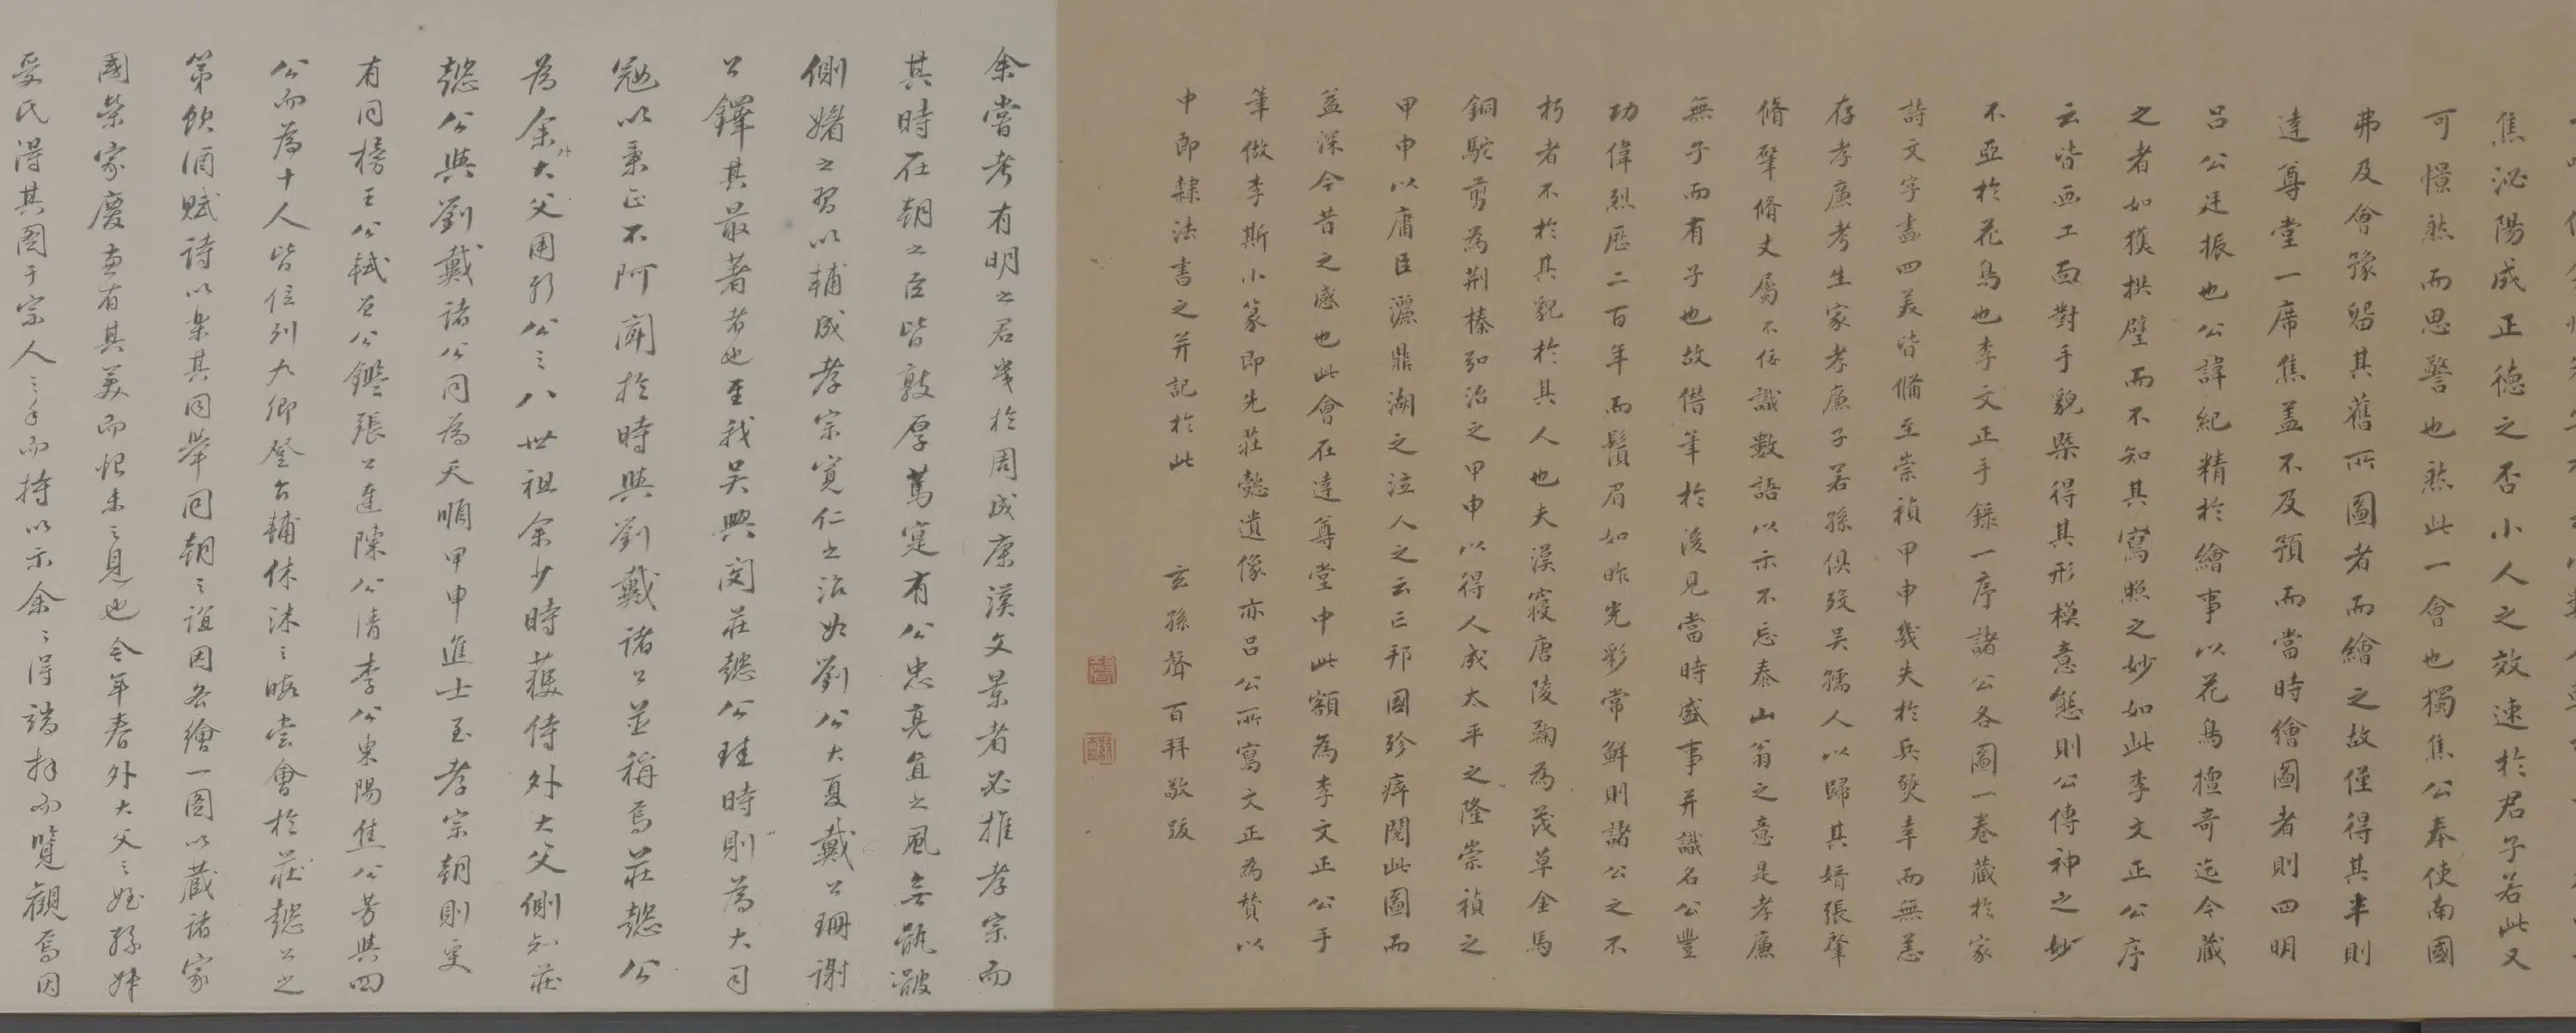 焦泌陽成正德之否小人之效速於君子若此又
可憬然而思警也然此一會也獨焦公奉使南國
弗及會豫留其舊所圖者而繪之故僅得其半則
達尊堂一席焦蓋不及預而當時繪圖者則四明
呂公廷振也公諱紀精於繪事以花鳥擅奇迄今藏
之者如獲拱璧而不知其寫照之妙如此李文正公序
云皆画工面對手貌槩得其形模意態則公傳神之妙
不亞於花鳥也李文正手錄一序諸公各圖一卷藏於家
詩文字畫四美皆備至崇禎甲申幾失於兵燹幸而無恙
存孝廉考生家孝廉子若孫俱歿吳孺人以歸其婿張肇
脩肇脩丈屬不佞識數語以示不忘泰山翁之意是孝廉
無子而有子也故僭筆於後見當時盛事并識名公豐
功偉烈歷二百年而鬚眉如昨光彩常鮮則諸公之不
朽者不於其貌於其人也夫漢寢唐陵鞠為茂草金馬
銅駝剪為荆榛弘治之甲申以得人成太平之隆崇禎之
甲申以庸臣灑鼎湖之泣人之云亡邦國殄瘁閱此圖而
益深今昔之感也此會在達尊堂中此額為李文正公手
筆倣李斯小篆即先莊懿遺像亦呂公所寫文正為贊以
中郎隸法書之并記於此
玄孫聲百拜敬跋
余嘗考有明之君幾於周成康漢文景者必推孝宗而
其時在朝之臣皆敦厚篤寔有公忠亮直之風無骫骳
側媚之習以輔成孝宗寬仁之治如劉公大夏戴公珊謝
公鐸其最著者也至我吳興閔莊懿公珪時則為大司
寇以秉正不阿聞於時與劉戴諸公並稱焉莊懿公
為余外大父圉形公之八世祖余少時獲侍外大父側知莊
懿公與劉戴諸公同為天順甲申進士至孝宗朝則更
有同榜王公軾曾公鑑張公達陳公清李公東陽焦公芳與四
公而為十人皆位列九卿登台輔休沐之暇嘗會於莊懿公之
第飲酒賦詩以樂其同舉同朝之誼因各繪一圖以藏諸家
國榮家慶蓋有其美而恨未之見也今年春外大父之姪孫
受氏得其圖于宗人之手而持以示余余得端拜而覽觀焉因